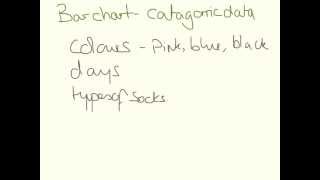 Bar chart - catagoric data
colours - Pink, blue, black
days
types of socks